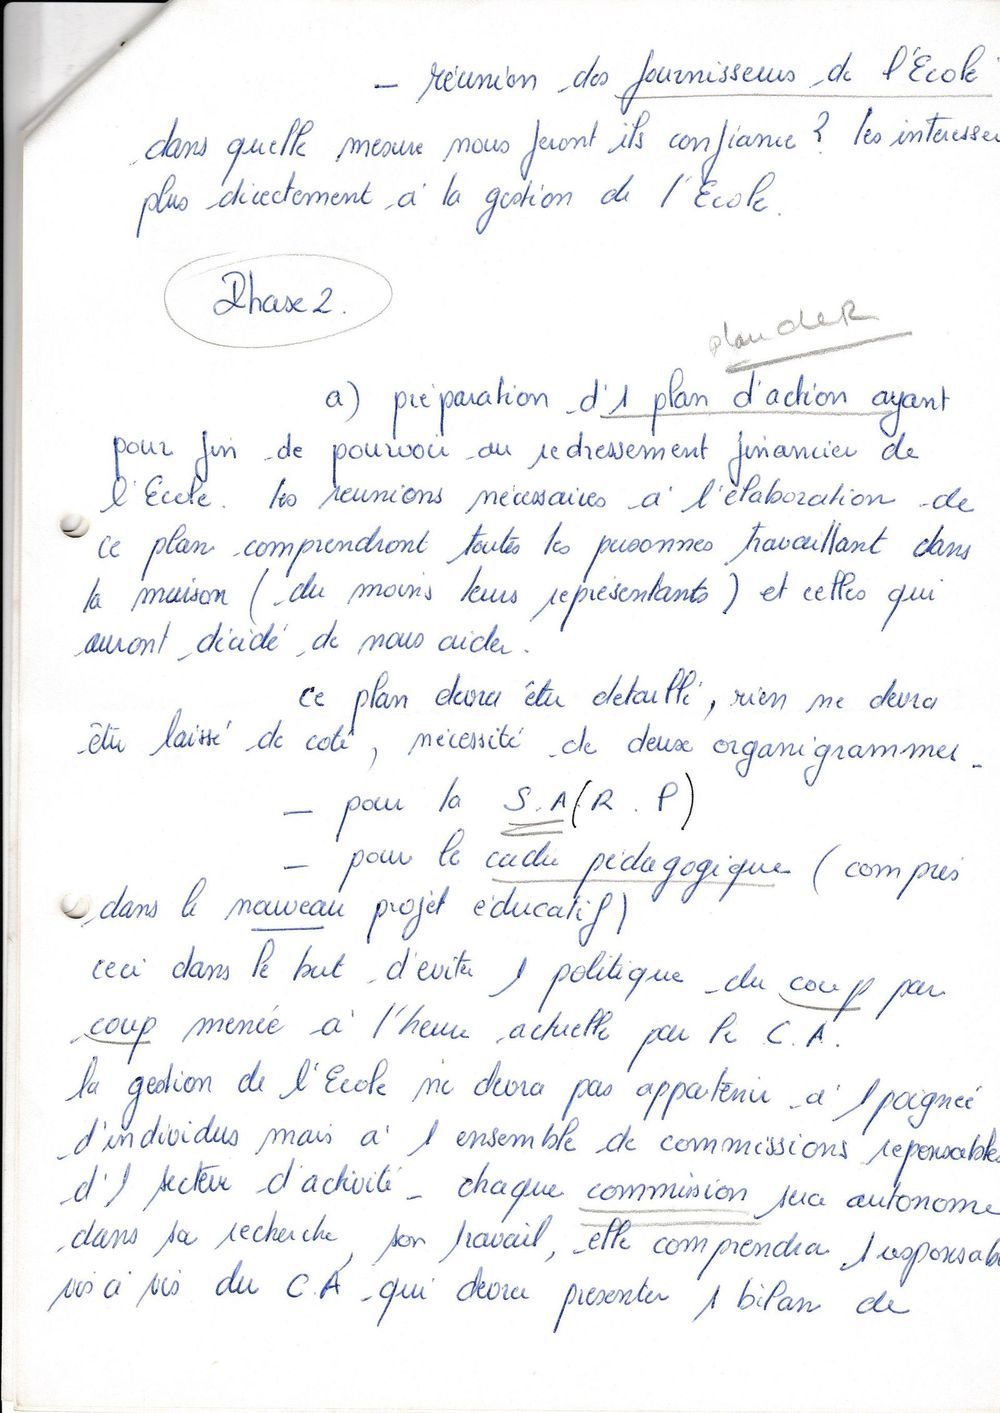 - réunion des fournisseurs de l'Ecole
dans quelle mesure nous feront ils confiance ? les interesser
plus directement à la gestion de l'Ecole.
Phase 2.
plan de R
a) préparation d'1 plan d'action ayant
pour fin de pourvoir au redressement financier de
l'Ecole. les réunions nécessaires à l'élaboration de
ce plan comprendront toutes les personnes travaillant dans
la maison ( du moins leurs représentants ) et celles qui
auront décidé de nous aider.
ce plan devra être detaillé, rien ne devra
être laissé de coté, nécessité de deux organigrammes -
- pour la S.A (R.P)
- pour le cadre pédagogique ( compris
dans le nouveau projet éducatif)
ceci dans le but d'éviter 1 politique du coup par
coup menée à l'heure actuelle par le C.A.
la gestion de l'Ecole ne devra pas appartenir à 1 poignée
d'individus mais à 1 ensemble de commissions reponsables
d'1 secteur d'activité - chaque commission sera autonome
dans sa recherche, son travail, elle comprendra 1 responsab
vis à vis du C.A qui devra présenter 1 bilan de